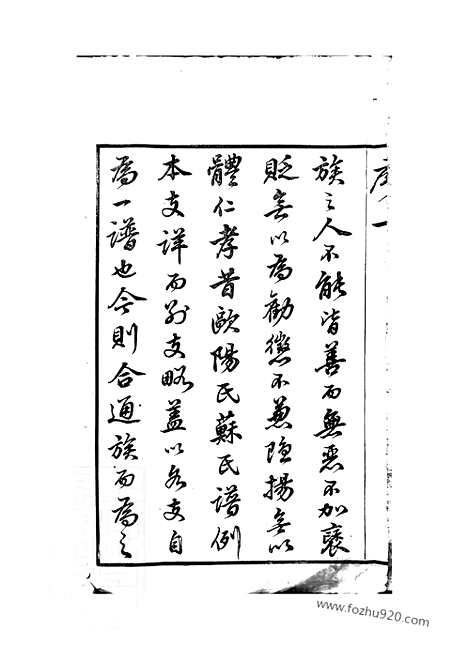 族之人不能皆善而無惡不加襃
貶無以為勸懲不兼隱揚無以
體仁孝昔歐陽氏蘇氏譜例
本支詳而別支略蓋以各支自
為一譜也今則合通族而為之
www.fozhu920.com